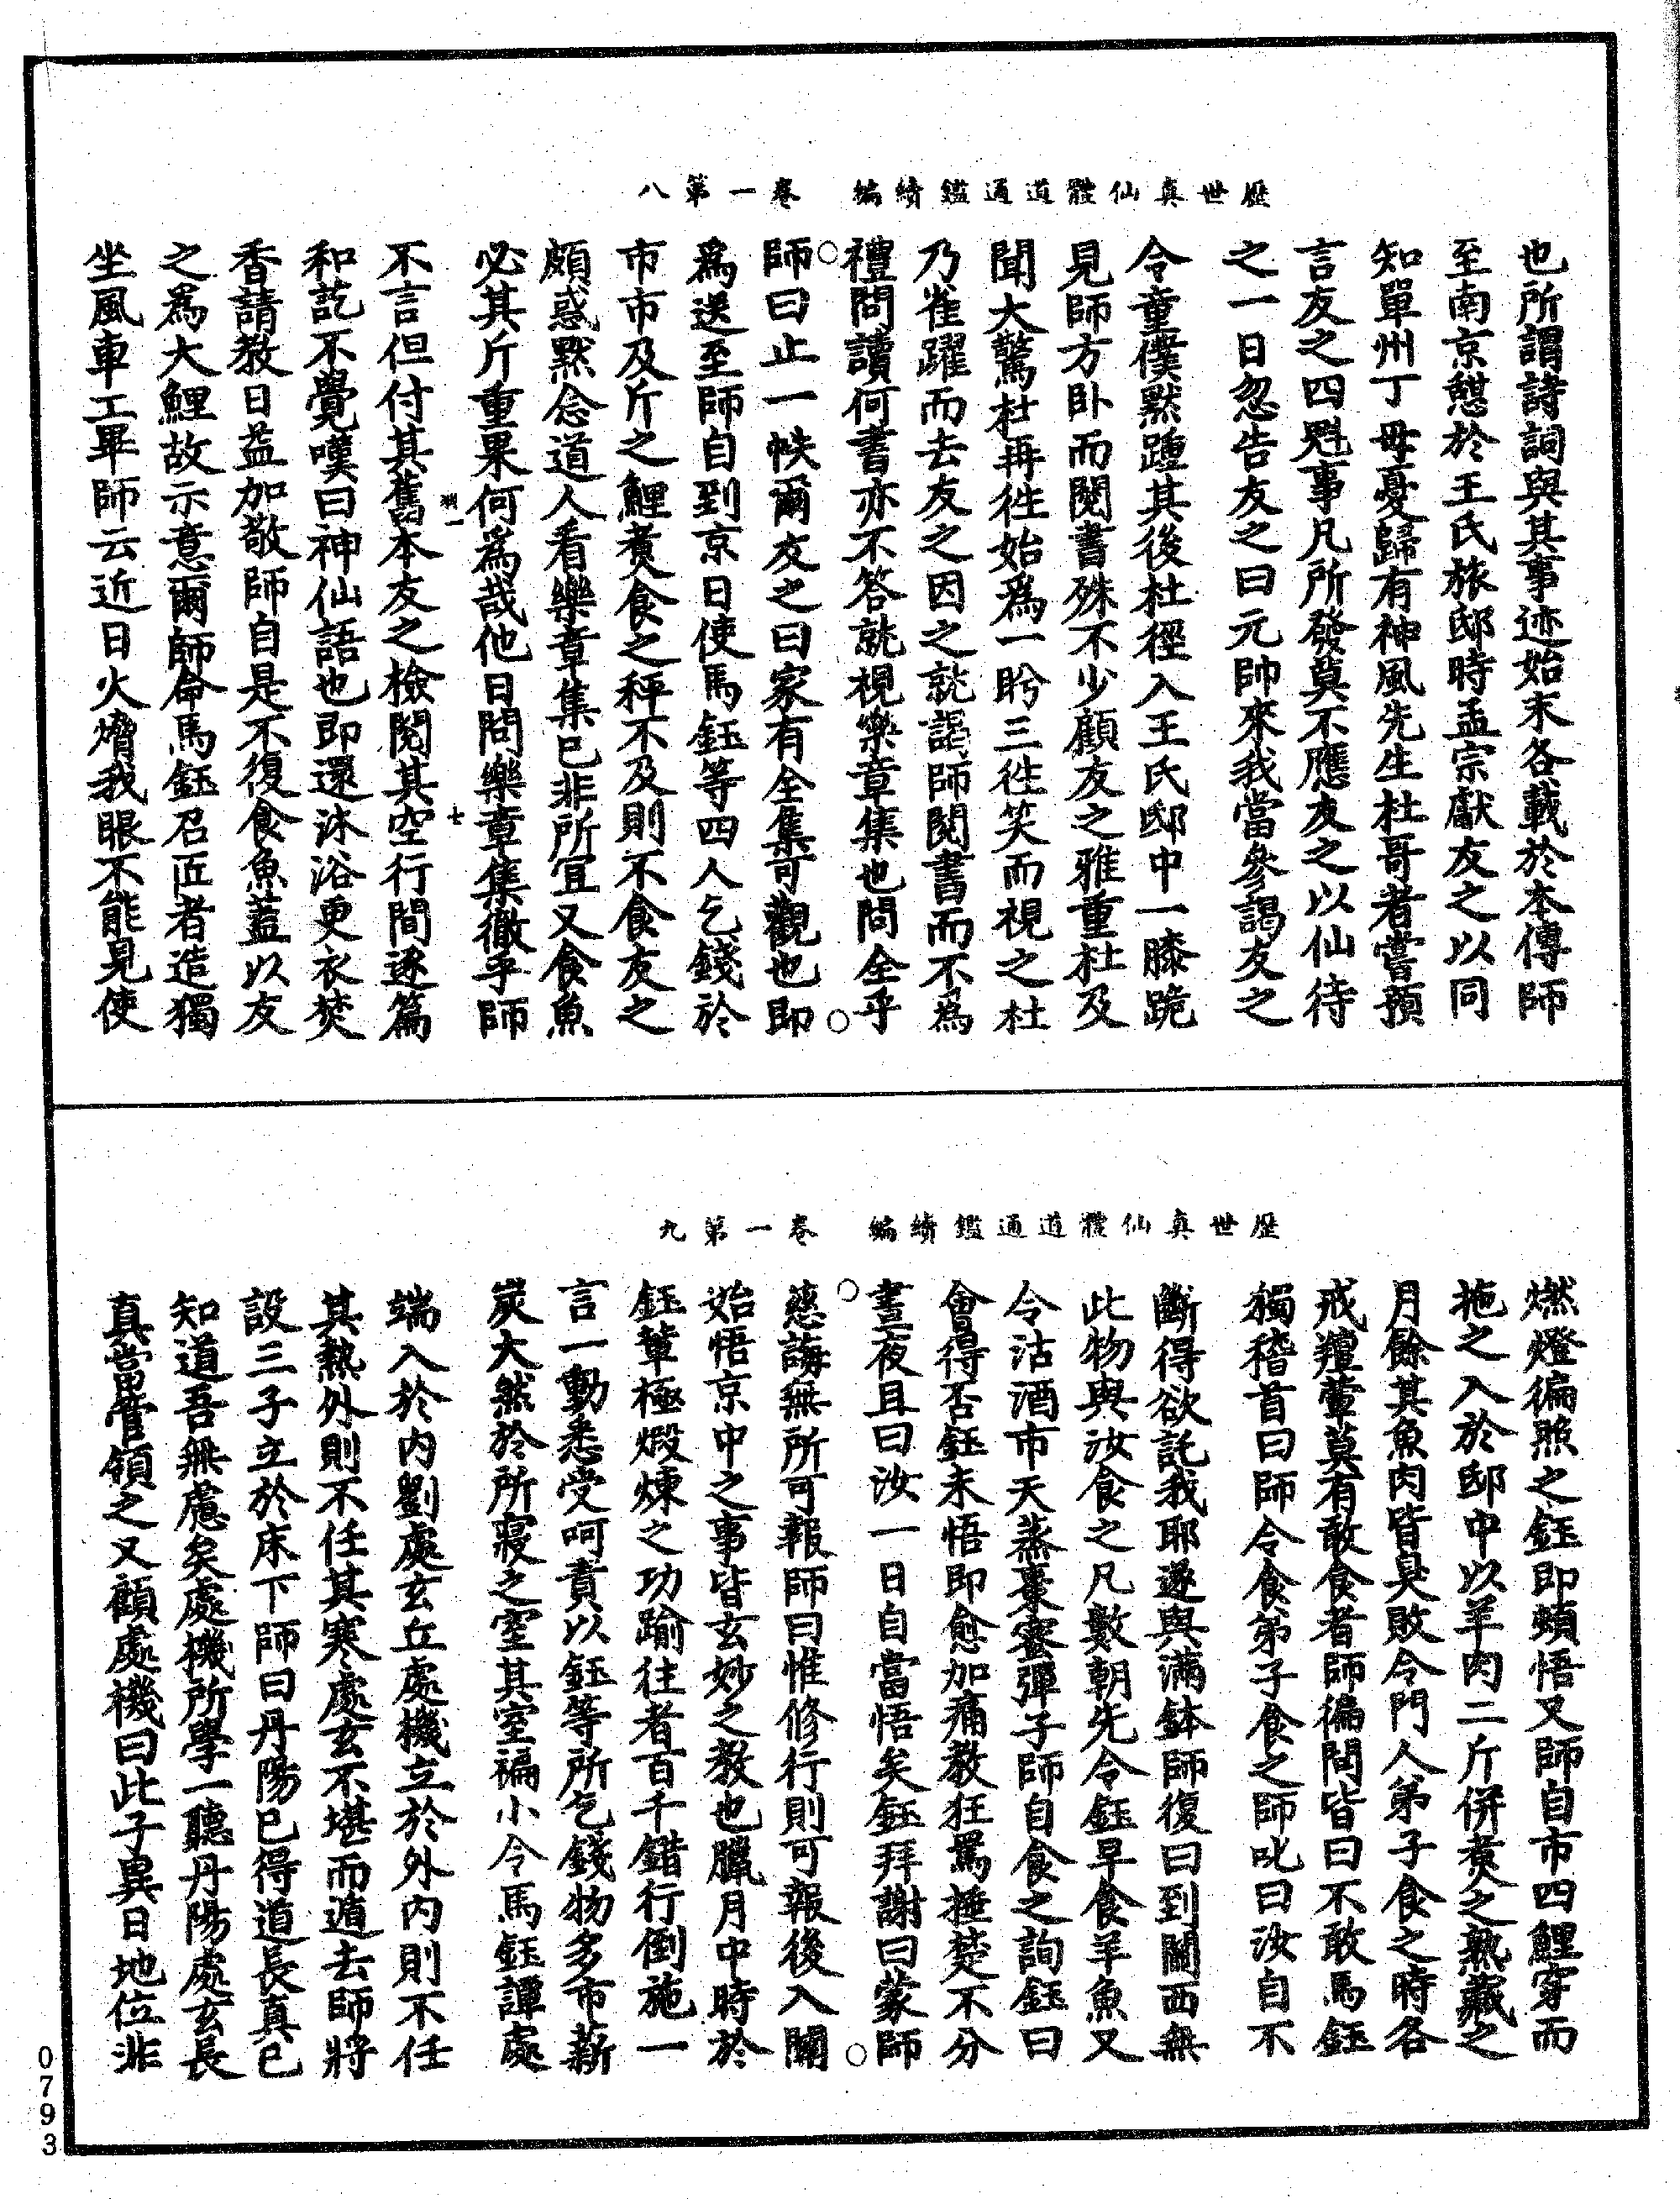 歷世真仙體道通鑑續編　卷一第八
也所謂詩詞與其事迹始末各載於本傳師
至南京憇於王氏旅邸時孟宗獻友之以同
知單州丁母憂歸有神風先生杜哥者嘗預
言友之四魁事凡所發莫不應友之以仙待
之一日忽告友之曰元帥來我當參謁友之
令童僕默踵其後杜徑入王氏邸中一膝跪
見師方卧而閱書殊不少顧友之雅重杜及
聞大驚杜再徃始爲一盻三徃笑而視之杜
乃雀躍而去友之因之就謁師閱書而不爲
禮問讀何書亦不答就視樂章集也問全乎
師曰止一帙爾友之曰家有全集可觀也即
爲送至師自到京日使馬鈺等四人乞錢於
市市及斤之鯉煮食之秤不及則不食友之
頗惑默念道人看樂章集已非所宜又食魚
必其斤重果何爲哉他日問樂章集徹乎師
不言但付其舊本友之檢閱其空行間逐篇
和訖不覺嘆曰神仙語也即還沐浴更衣焚
香請教日益加敬師自是不復食魚蓋以友
之爲大鯉故示意爾師命馬鈺召匠者造獨
坐風車工畢師云近日火熸我眼不能見使
歷世真仙體道通鑑續編　卷一第九
燃燈徧照之鈺即頰悟又師自市四鯉穿而
拖之入於邸中以羊肉二斤併煮之熟藏之
月餘其魚肉皆臭敗令門人弟子食之時各
戒羶葷莫有敢食者師徧問皆曰不敢馬鈺
獨稽首曰師令食弟子食之師叱曰汝自不
斷得欲託我耶遂與滿鉢師復曰到關西無
此物與汝食之凡數朝先令鈺早食羊魚又
令沽酒市天蒸棗蜜彈子師自食之詢鈺曰
會得否鈺未悟即愈加痛教狂罵捶楚不分
晝夜且曰汝一日自當悟矣鈺拜謝曰蒙師
慈誨無所可報師曰惟修行則可報後入關
始悟京中之事皆玄妙之教也臘月中時於
鈺輩極煅煉之功踰往者百千錯行倒施一
言一動悉受呵責以鈺等所乞錢物多市薪
炭大然於所寢之室其室褊小令馬鈺譚處
端入於内劉處玄丘處機立於外内則不任
其熱外則不任其寒處玄不堪而遁去師將
設三子立於床下師曰丹陽已得道長真已
知道吾無慮矣處機所學一聽丹陽處玄長
真當管領之又顧處機曰此子異日地位非
0793